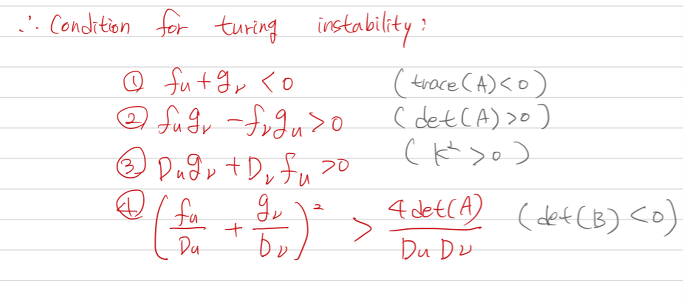 ∴ Condition for turing instability:
① fu + gv < 0 (trace(A)<0)
② fugv - fvgu > 0 (det(A)>0)
③ Dugv + Dvfu > 0 (k² > 0)
④ (fu/Du + gv/bv)² > 4det(A)/DuDv (det(B)<0)